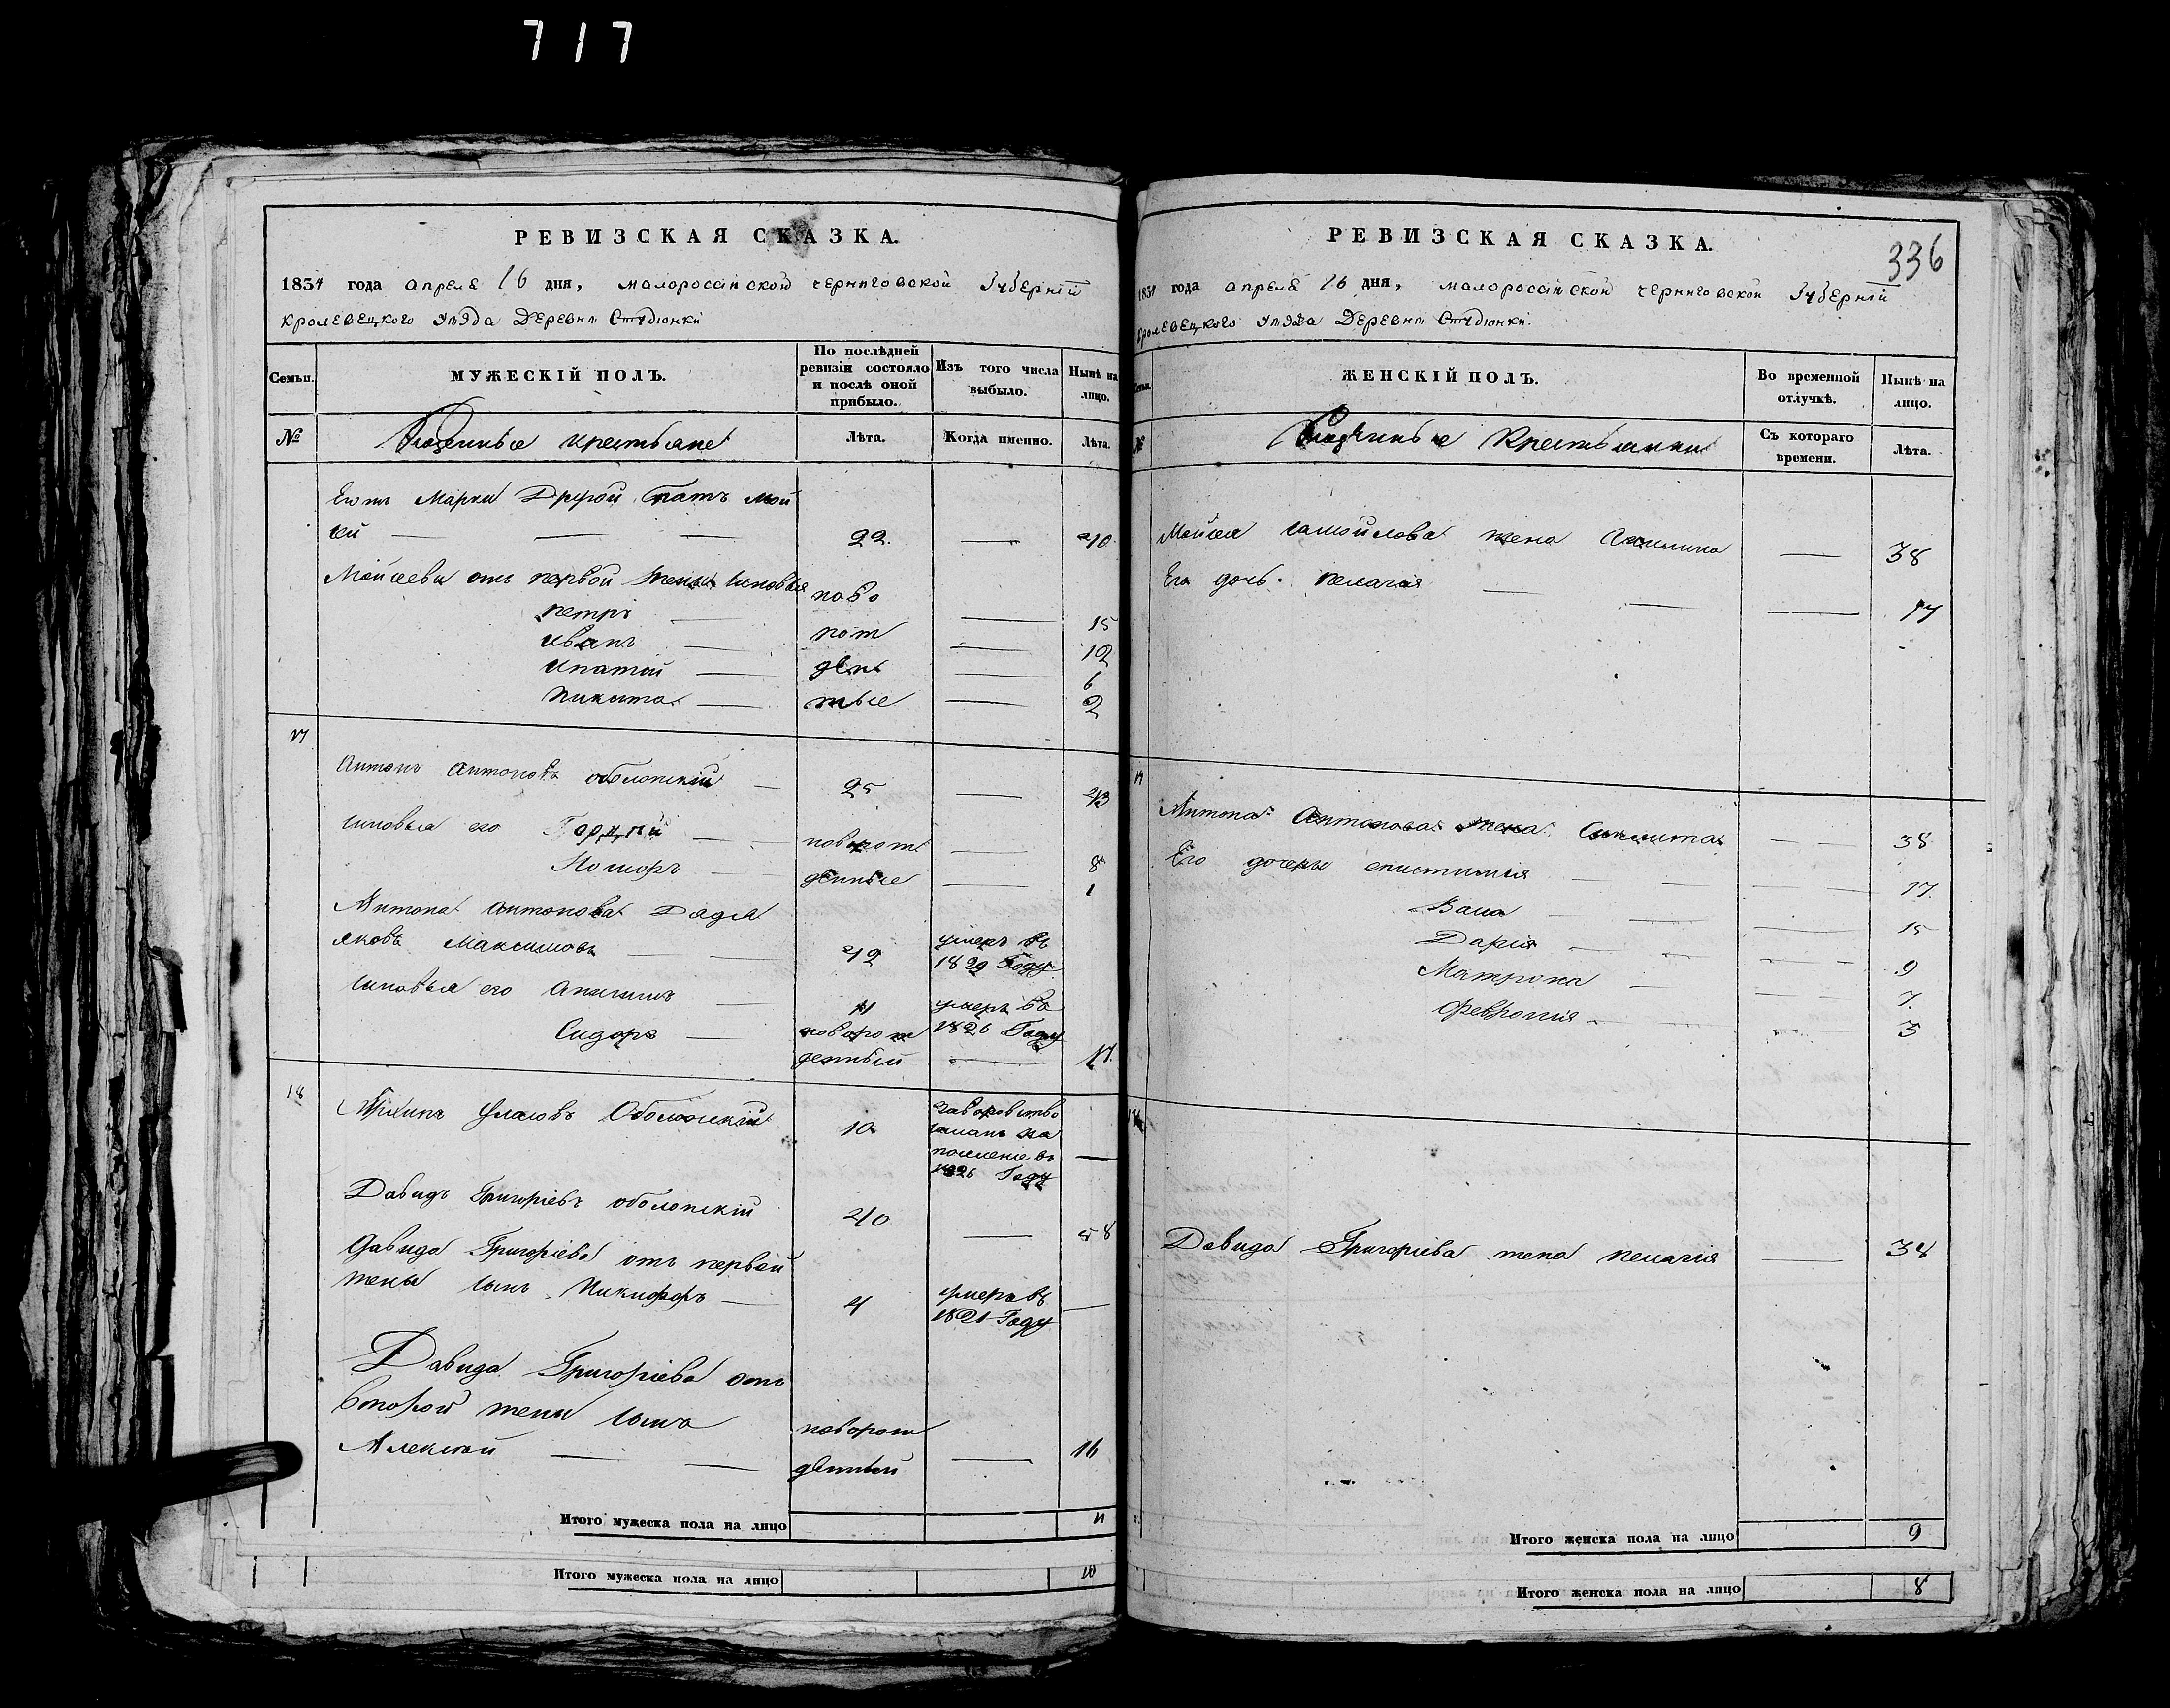 717
РЕВИЗСКАЯ СКАЗКА.
1834 года апреля 16 дня, малороссiйской черниговской Губернiй
кролевецкого уѣзда Деревни Студiонки
Семьи. МУЖЕСКIЙ ПОЛЪ. По послѣдней ревизiи состояло и послѣ оной прибыло. Изъ того числа выбыло. Нынѣ на лицо.
№ крестьяне Лѣта. Когда именно. Лѣта.
Марки Другой братъ Мой
сей — — — 22. — 40
Мойсеевы отъ первой жены сыновья ново
петръ — — 15
иванъ — рож — 12
ипатiй — ден — 6
Никита — ные — 2
17
Антонъ Антоновъ оболонскiй — 25 — 43
сыновья его — новорож — 8
— денные — 1
Антона Антонова Дядя
яковъ Максимовъ — — 42 умеръ въ 1829 Году
сыновья его — 11 умеръ въ 1826 Году
Сидоръ — новорож
денный — 17.
18 Оболонскiй 10 заворовство
на
поселенiе въ —
1826 Году
Давидъ Григорiевъ оболонскiй 40 — 58
Давида Григорiева отъ первой
жены сынъ Никифоръ — 4 умеръ въ 1821 Году —
Давида Григорiева отъ
второй жены сынъ новорож
Алексѣй — — денный — 16
Итого мужеска пола на лицо 11
Итого мужеска пола на лицо 10
РЕВИЗСКАЯ СКАЗКА.
336
1834 года апреля 16 дня, малороссiйской черниговской Губернiй
кролевецкого уѣзда Деревни Студiонки.
Семьи. ЖЕНСКIЙ ПОЛЪ. Во временной отлучкѣ. Нынѣ на лицо.
№ Крестьянки Съ котораго времени. Лѣта.
Мойсея самойлова жена Акилина — 38
Его дочь пелагiя — — — 17
17
Антона Антонова жена — — 38
Его дочеры епистимiя — — — — 17.
Васа — — — — 15
Дарiя — — — — 9
Матрона — — — 7.
Феврониiя — 3
18
Давида Григорiева жена пелагiя — 38
Итого женска пола на лицо 9
Итого женска пола на лицо 8